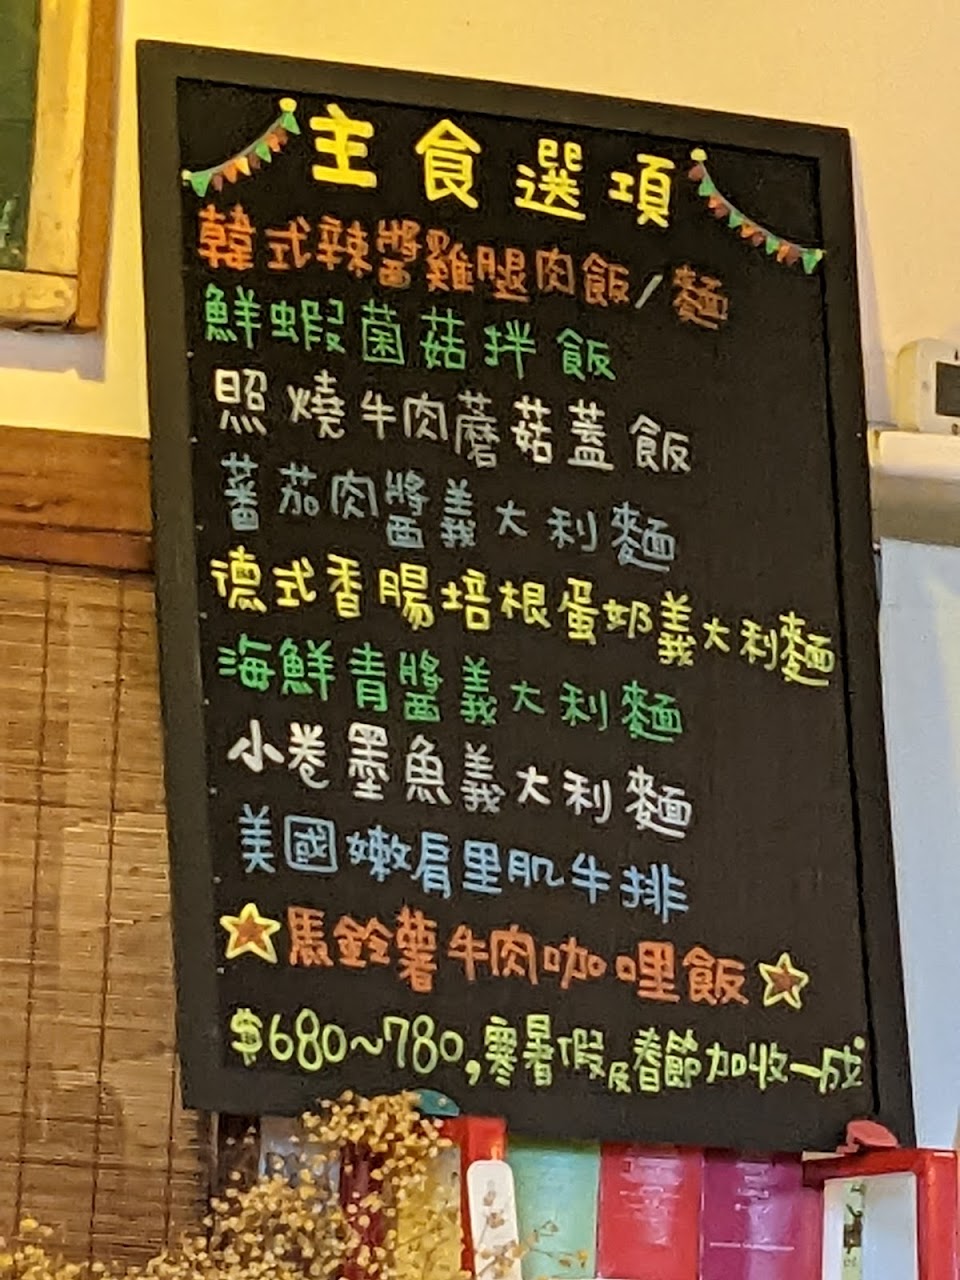 主食選項
韓式辣醬雞腿肉飯/麵
鮮蝦菌菇拌飯
照燒牛肉蘑菇蓋飯
蕃茄肉醬義大利麵
德式香腸培根蛋奶義大利麵
海鮮青醬義大利麵
小卷墨魚義大利麵
美國嫩肩里肌牛排
馬鈴薯牛肉咖哩飯
$680~780,寒暑假及春節加收一成